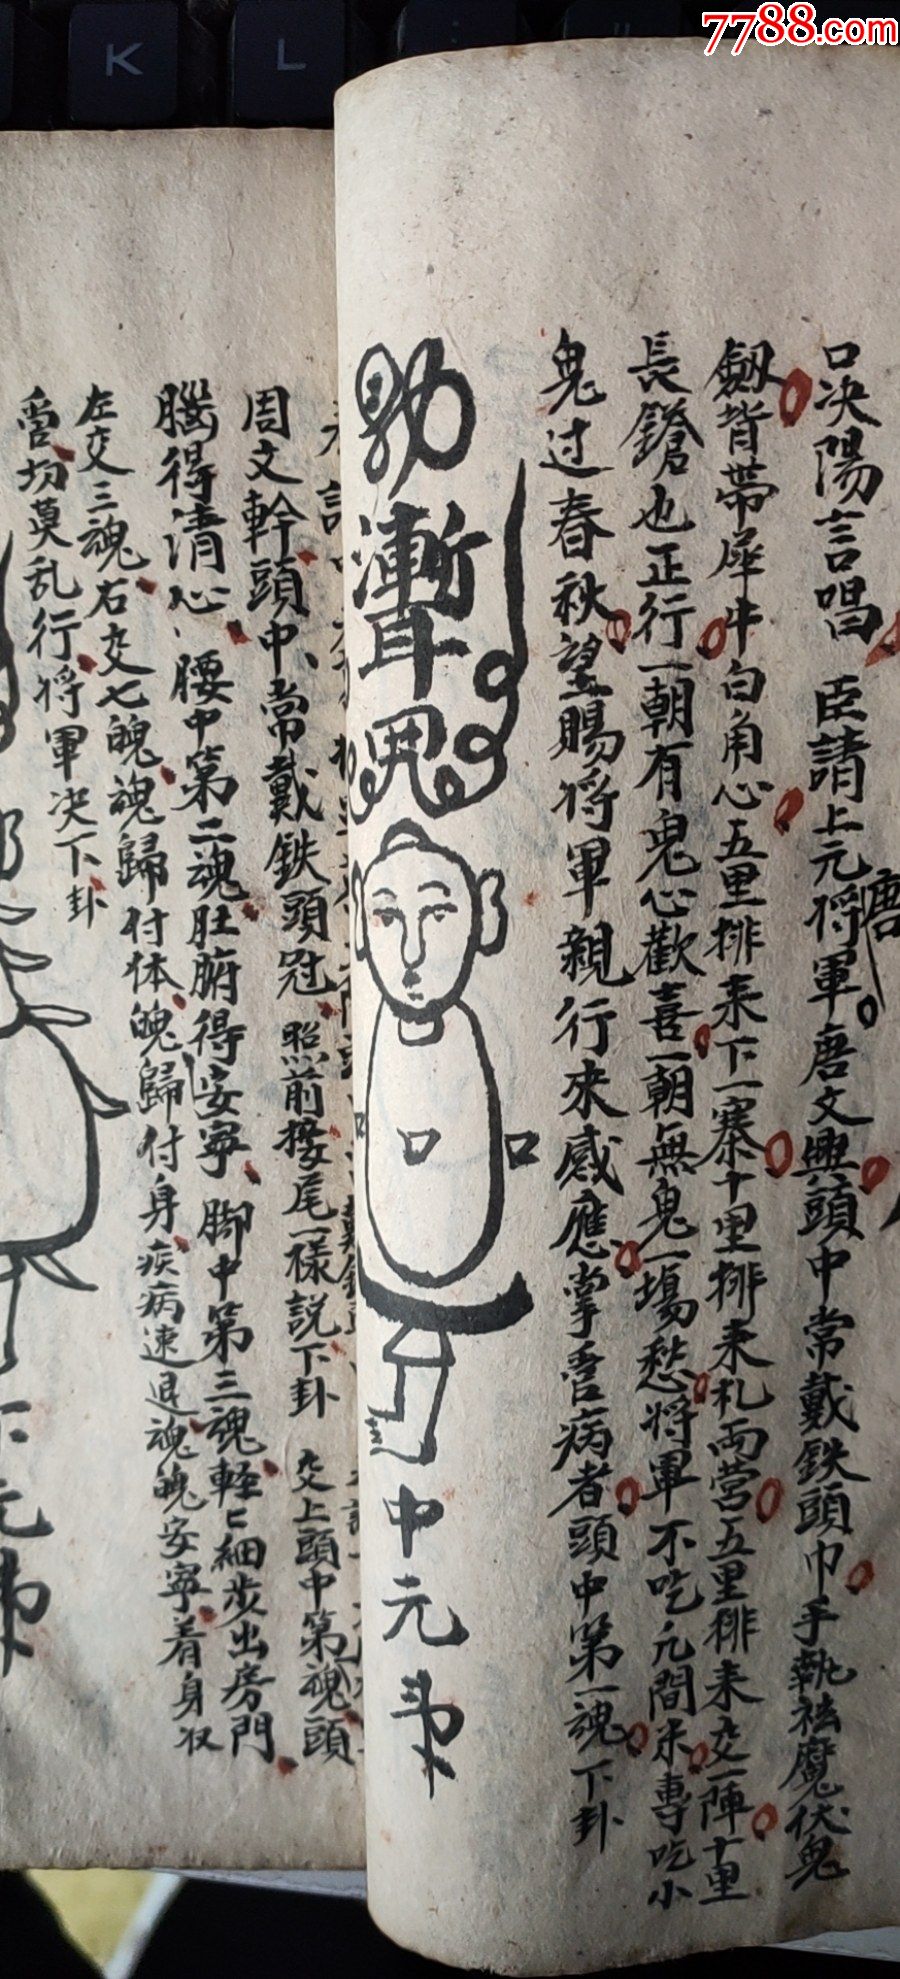 7788.com
K
L
口决陽言唱 臣請上元将軍唐文興頭中常戴鉄頭巾手執祛魔伏鬼
唐
劔背帶犀牛白角心五里排来下一寨十里排来札両营五里排来交一陣十里
長鎗也正行一朝有鬼心歡喜一朝無鬼一場愁将軍不吃凢間米專吃小
鬼过春秋望賜将軍親行來感應掌 病者頭中第一魂下卦
中元
周文幹頭中常戴鉄頭冠照前接尾一樣説下卦 交上頭中第 魂頭
腦得清心腰中第二魂肚腑得安寧脚中第三魂軽〻細步出房門
左交三魂右交七魄魂歸付体魄歸付身疾病速退魂魄安寧着身収
切莫乱行将軍决下卦
元